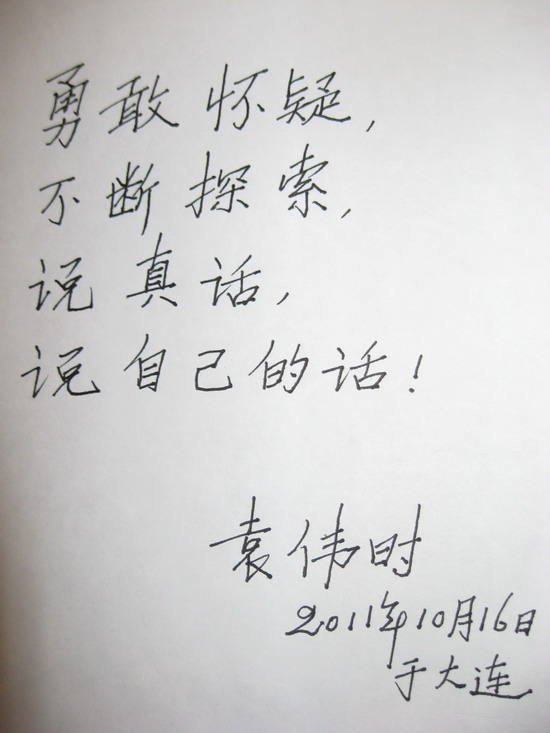 勇敢怀疑，
不断探索，
说真话，
说自己的话！
袁伟时
2011年10月16日
于大连